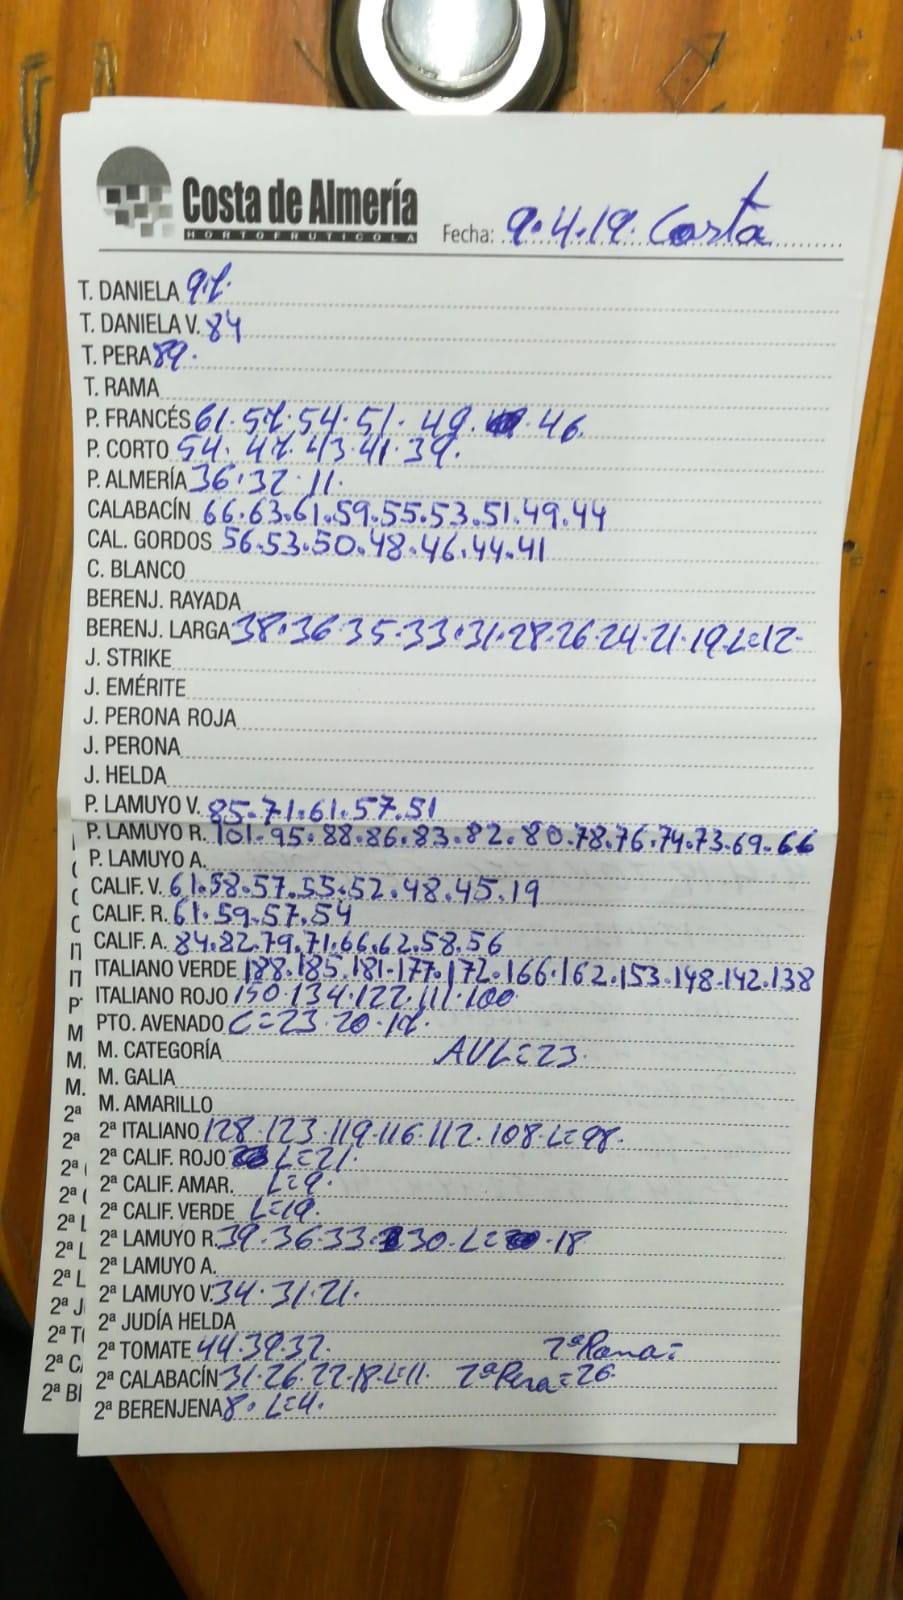 Costa de Almería
HORTOFRUTICOLA
Fecha: 9.4.19. Costa
T. DANIELA 97.
T. DANIELA V. 84
T. PERA 89.
T. RAMA
P. FRANCÉS 61.57.54.51.49. 46
P. CORTO 54.47.43.41.39.
P. ALMERÍA 36.32.11.
CALABACÍN 66.63.61.59.55.53.51.49.44
CAL. GORDOS 56.53.50.48.46.44.41
C. BLANCO
BERENJ. RAYADA
BERENJ. LARGA 38.36.35.33.31.28.26.24.21.19.L=12.
J. STRIKE
J. EMÉRITE
J. PERONA ROJA
J. PERONA
J. HELDA
P. LAMUYO V. 85.71.61.57.51
P. LAMUYO R. 101.95.88.86.83.82.80.78.76.74.73.69.66
P. LAMUYO A.
CALIF. V. 61.58.57.55.52.48.45.19
CALIF. R. 61.59.57.54
CALIF. A. 84.82.79.71.66.62.58.56
ITALIANO VERDE 188.185.181.177.172.166.162.153.148.142.138
ITALIANO ROJO 150.134.122.111.100
PTO. AVENADO C=23.20.17.
M. CATEGORÍA AVL=23.
M. GALIA
M. AMARILLO
2ª ITALIANO 128.123.119.116.112.108.L=98.
2ª CALIF. ROJO L=21.
2ª CALIF. AMAR. L=9.
2ª CALIF. VERDE L=19.
2ª LAMUYO R. 39.36.33.30.L= .18
2ª LAMUYO A.
2ª LAMUYO V. 34.31.21.
2ª JUDÍA HELDA
2ª TOMATE 44.39.32. 2ª Rama=
2ª CALABACÍN 31.26.22.18.L=11. 2ª Pera=26.
2ª BERENJENA 8. L=4.